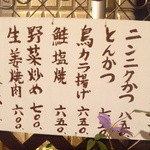 ニンニクかつ
とんかつ
鳥カラ揚げ 六五〇
鮭塩焼 六五〇
野菜炒め 七〇〇
生姜焼肉 六〇〇